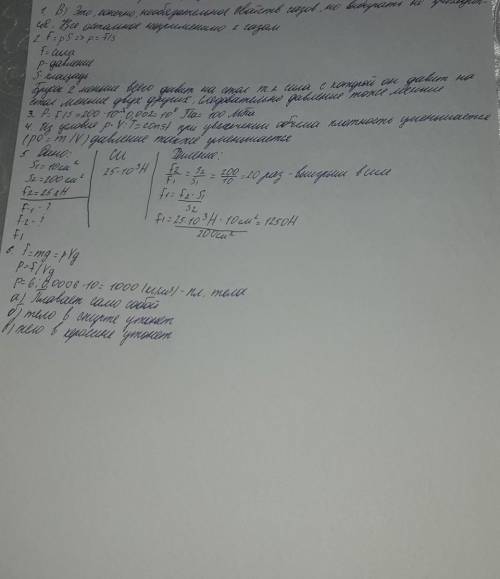 1. В) Это, конечно, необязательное свойство газов, но выбирать не приходит-
ся. Все остальное неприменимо к газам
2. F=pS => p=F/S
F-сила
p-давление
S-площадь
брусок 2 меньше всего давит на стол т.к сила с которой он давит на
стол меньше двух других. следовательно давление также меньше
3. P=F/S=200·10³/0,002=10⁸ Па=100 МПа
4. Из условия p·V·T=const при увеличении объема плотность уменьшается
(ро=m/V) давление также уменьшается
5. Дано: СИ Решение:
S1=10см²
S2=200см²
F2=25кН 25·10³Н
F1-?
F2-?
F1
F2/F1=S2/S1=200/10=20 раз-выигрыш в силе
F1=F2·S1/S2
F1=25·10³Н·10см²/200см²=1250Н
6. F=mg=pVg
P=F/Vg
P=6:0,0006·10=1000(кг/м³)-пл. тела
а) Плавает само собой
б) тело в спирте утонет
в) тело в керосине утонет